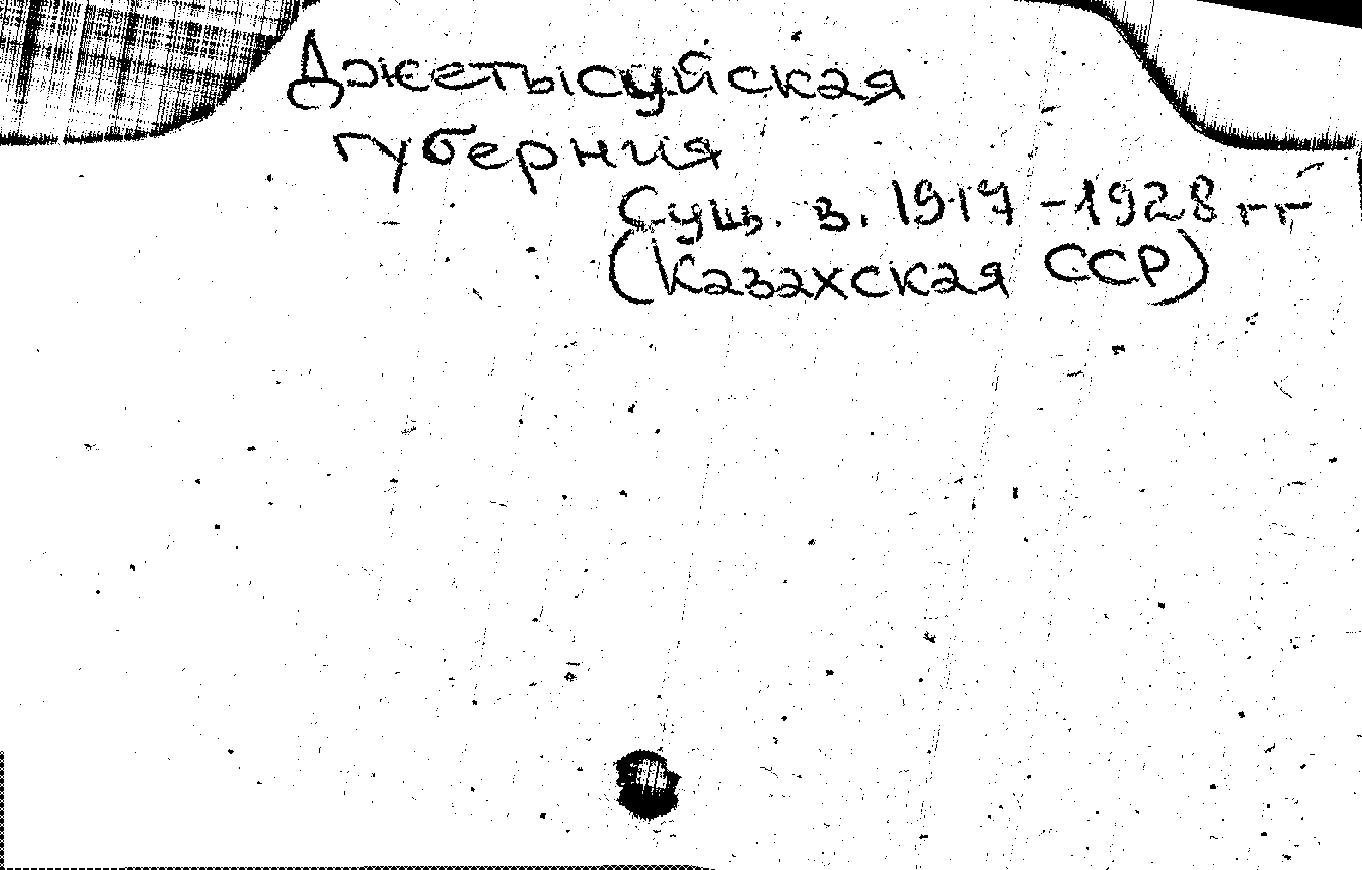 Джетысуйская
губерния
Сущ. в. 1917-1928 гг
(Казахская ССР)